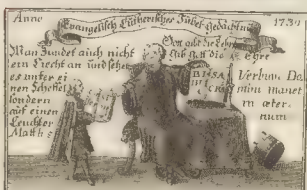 Anno 1731
Evangelisch Lutherisches Jubel Gedächtnü
Man Zündet auch nicht
ein Liecht an und setzet
es unter ei
nen Scheffel
sondern
auf einen
Leuchter
Matth: 5
Gott
die Ehre
BIBLIA
Verbum Do
mini manet
in æter
num